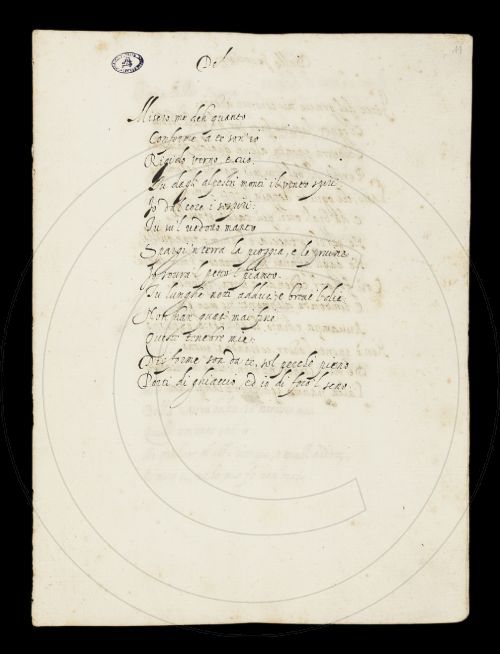 19
Del
Misero me deh quanto
Conforme a te son io
Rigido verno, e rio.
Tu dagli alpestri monti il vento spiri
Io dal core i sospiri.
Tu sul vedono manto
Spargi in terra la pioggia, e le pruine
Io sovra l petto l pianto.
Tu lunghe notti adduci, e brevi l die
Ne han quasi mai fine
Queste tenebre mie.
Disforme son da te, sol perché pieno
Porti di ghiaccio, ed io di foco l seno.